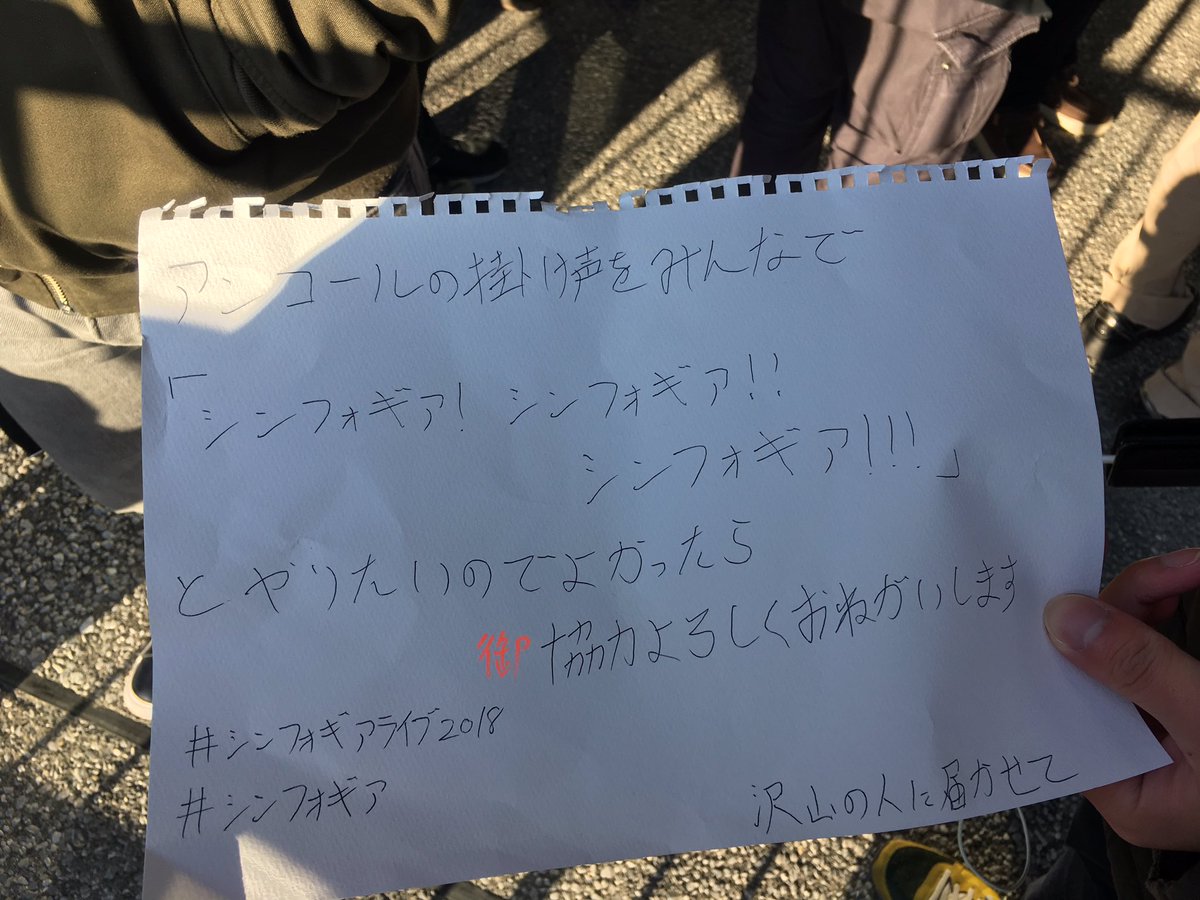 アンコールの掛け声をみんなで
「シンフォギア! シンフォギア!!
シンフォギア!!!」
とやりたいのでよかったら
御協力よろしくおねがいします
#シンフォギアライブ2018
#シンフォギア
沢山の人に届かせて